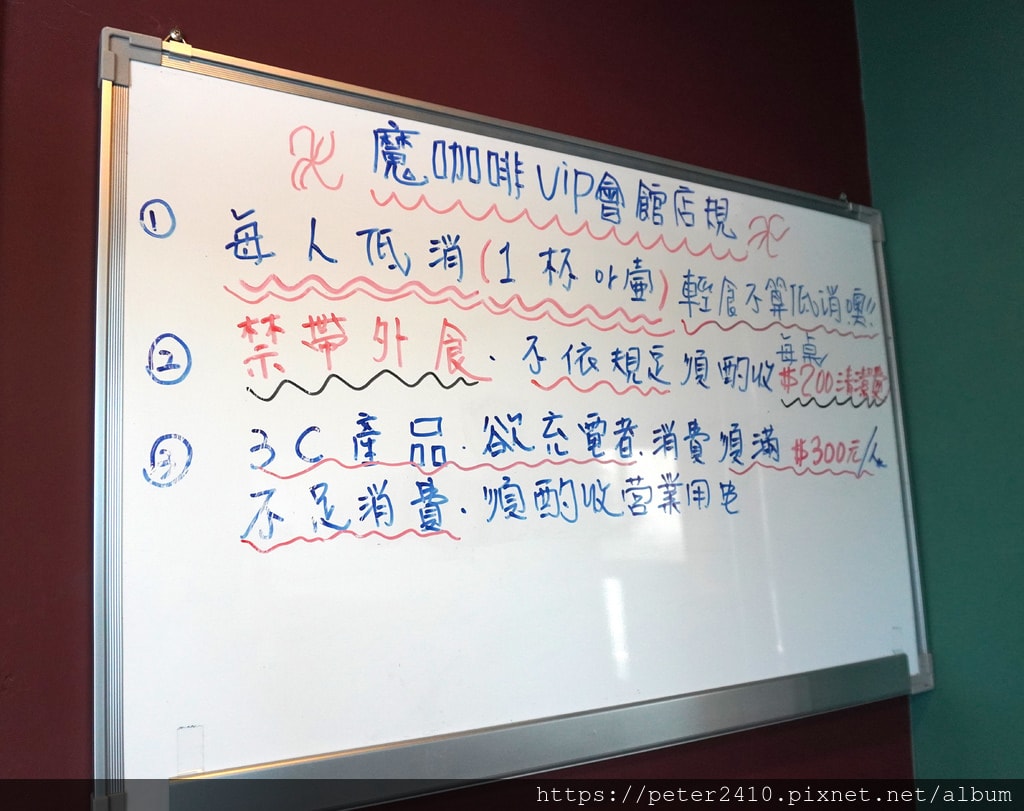 魔咖啡vip會館店規
① 每人低消(1杯or壺)輕食不算低消噢!!
② 禁帶外食.不依規定須酌收每桌$200清潔費
③ 3C產品.欲充電者.消費須滿$300元/人
不足消費.須酌收营業用电
https://peter2410.pixnet.net/album